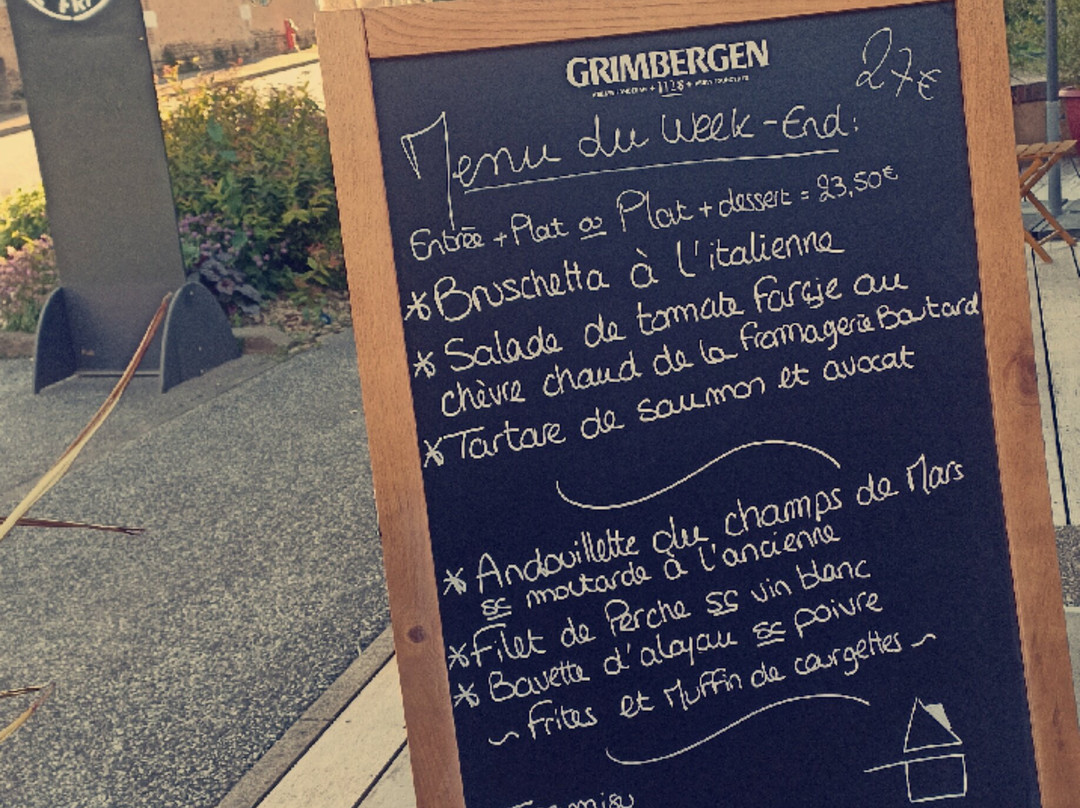 FRI
GRIMBERGEN
1128
27€
Menu du Week-End:
Entrée + Plat ou Plat + dessert = 23,50€
*Bruschetta à l'italienne
*Salade de tomate Farçie au
chèvre chaud de la fromagerie Boutard
*Tartare de saumon et avocat
*Andouillette du champs de Mars
sc moutarde à l'ancienne
*Filet de Perche sc vin blanc
*Bavette d'aloyau sc poivre
~ frites et Muffin de courgettes ~